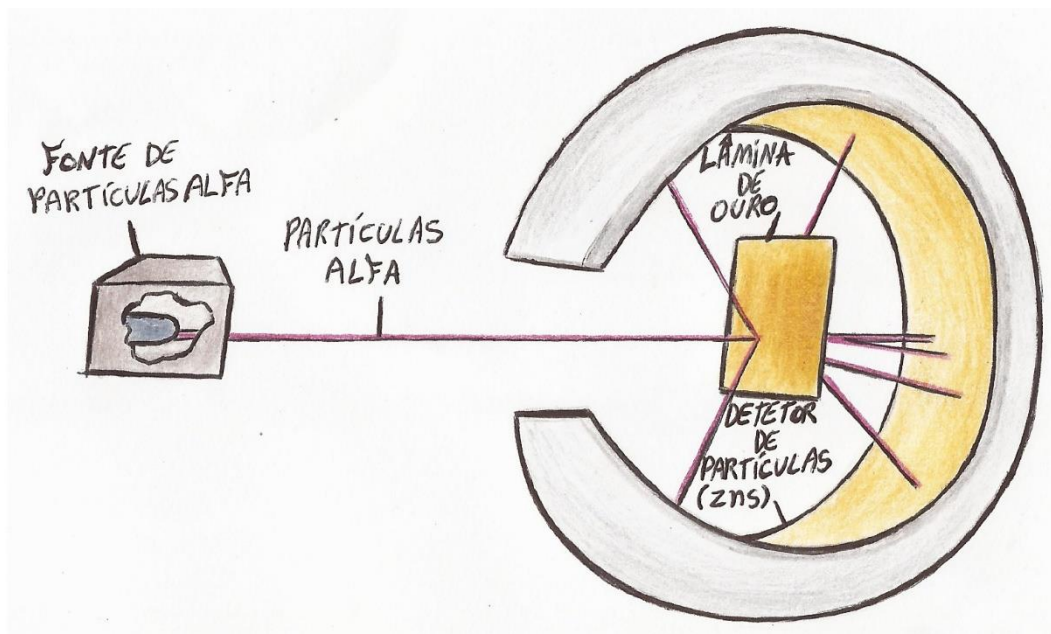 FONTE DE
PARTÍCULAS ALFA
PARTÍCULAS
ALFA
LÂMINA
DE
OURO
DETETOR
DE
PARTÍCULAS
(ZnS)